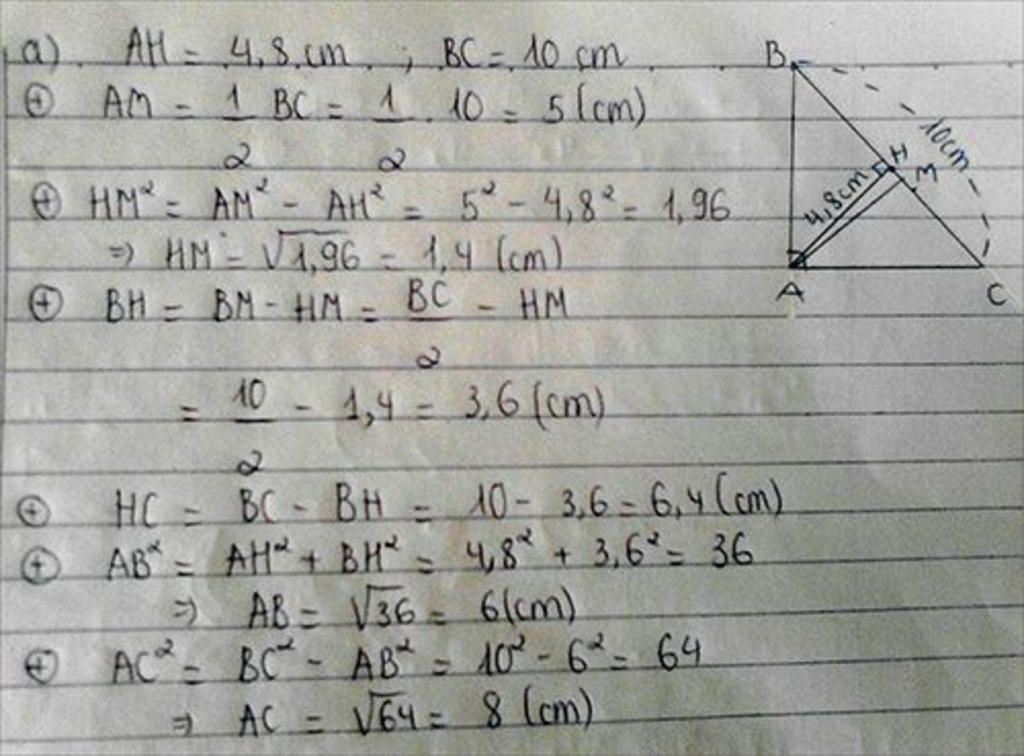 a). AH = 4,8 cm ; BC = 10 cm
⊕ AM = 1/2 BC = 1/2 . 10 = 5 (cm)
⊕ HM² = AM² - AH² = 5² - 4,8² = 1,96
⇒ HM = √1,96 = 1,4 (cm)
⊕ BH = BM - HM = BC/2 - HM
= 10/2 - 1,4 = 3,6 (cm)
⊕ HC = BC - BH = 10 - 3,6 = 6,4 (cm)
⊕ AB² = AH² + BH² = 4,8² + 3,6² = 36
⇒ AB = √36 = 6 (cm)
⊕ AC² = BC² - AB² = 10² - 6² = 64
⇒ AC = √64 = 8 (cm)
B
10cm
H
M
4,8cm
A
C